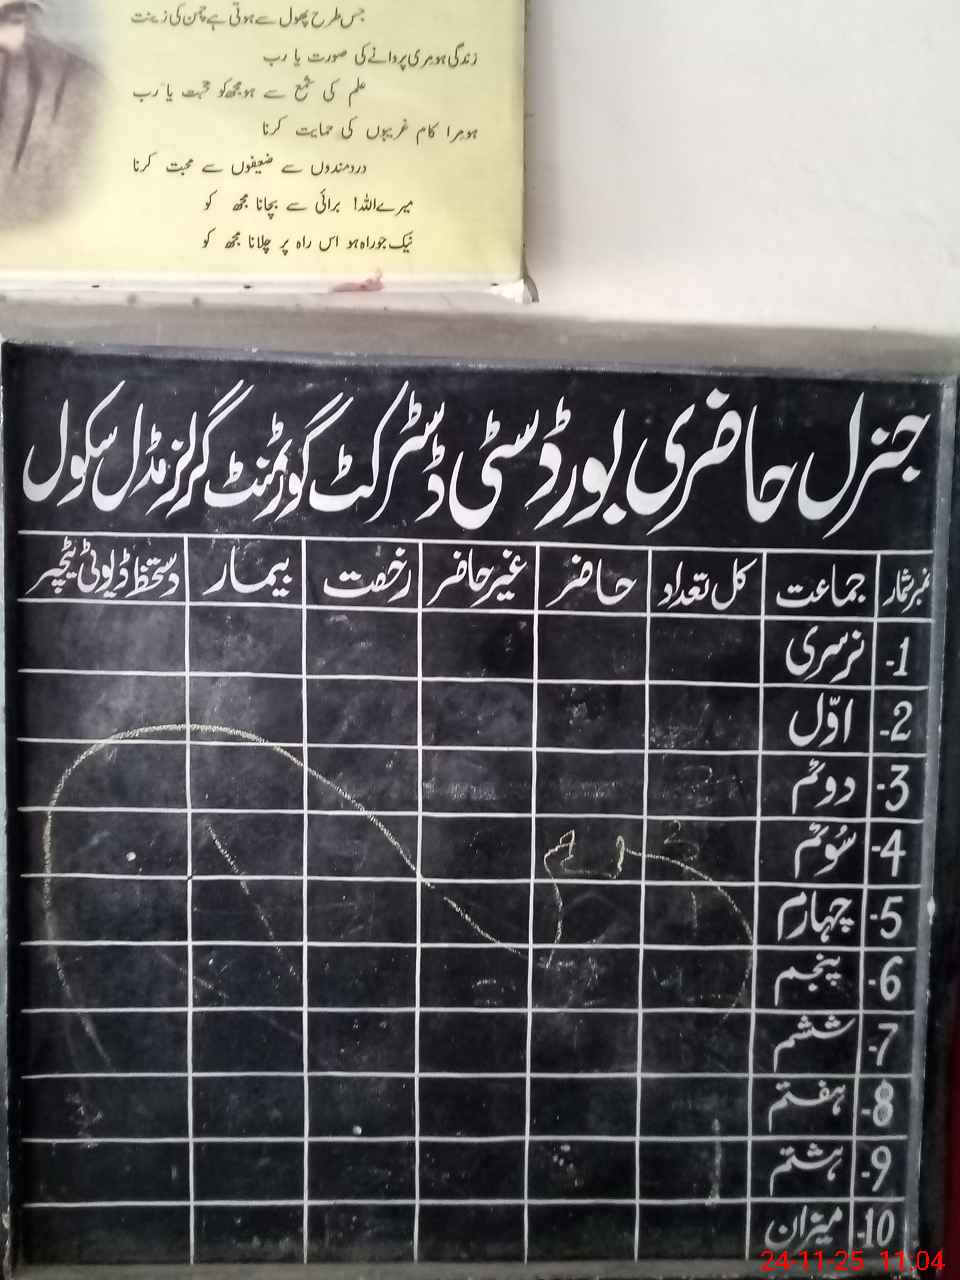 جس طرح پھول سے ہوتی ہے چمن کی زینت
زندگی ہو مری پروانے کی صورت یا رب
علم کی شمع سے ہو مجھ کو محبت یا رب
ہو مرا کام غریبوں کی حمایت کرنا
دردمندوں سے ضعیفوں سے محبت کرنا
میرے اللہ! برائی سے بچانا مجھ کو
نیک جو راہ ہو اس راہ پر چلانا مجھ کو
جنرل حاضری بورڈ سٹی ڈسٹرکٹ گورنمنٹ گرلز مڈل سکول
نمبر شمار جماعت کل تعداد حاضر غیر حاضر رخصت بیمار دستخط ڈیوٹی ٹیچر
1- نرسری
2- اوّل
3- دوئم
4- سُوئم
5- چہارم
6- پنجم
7- ششم
8- ہفتم
9- ہشتم
10- میزان
24-11-25 11.04